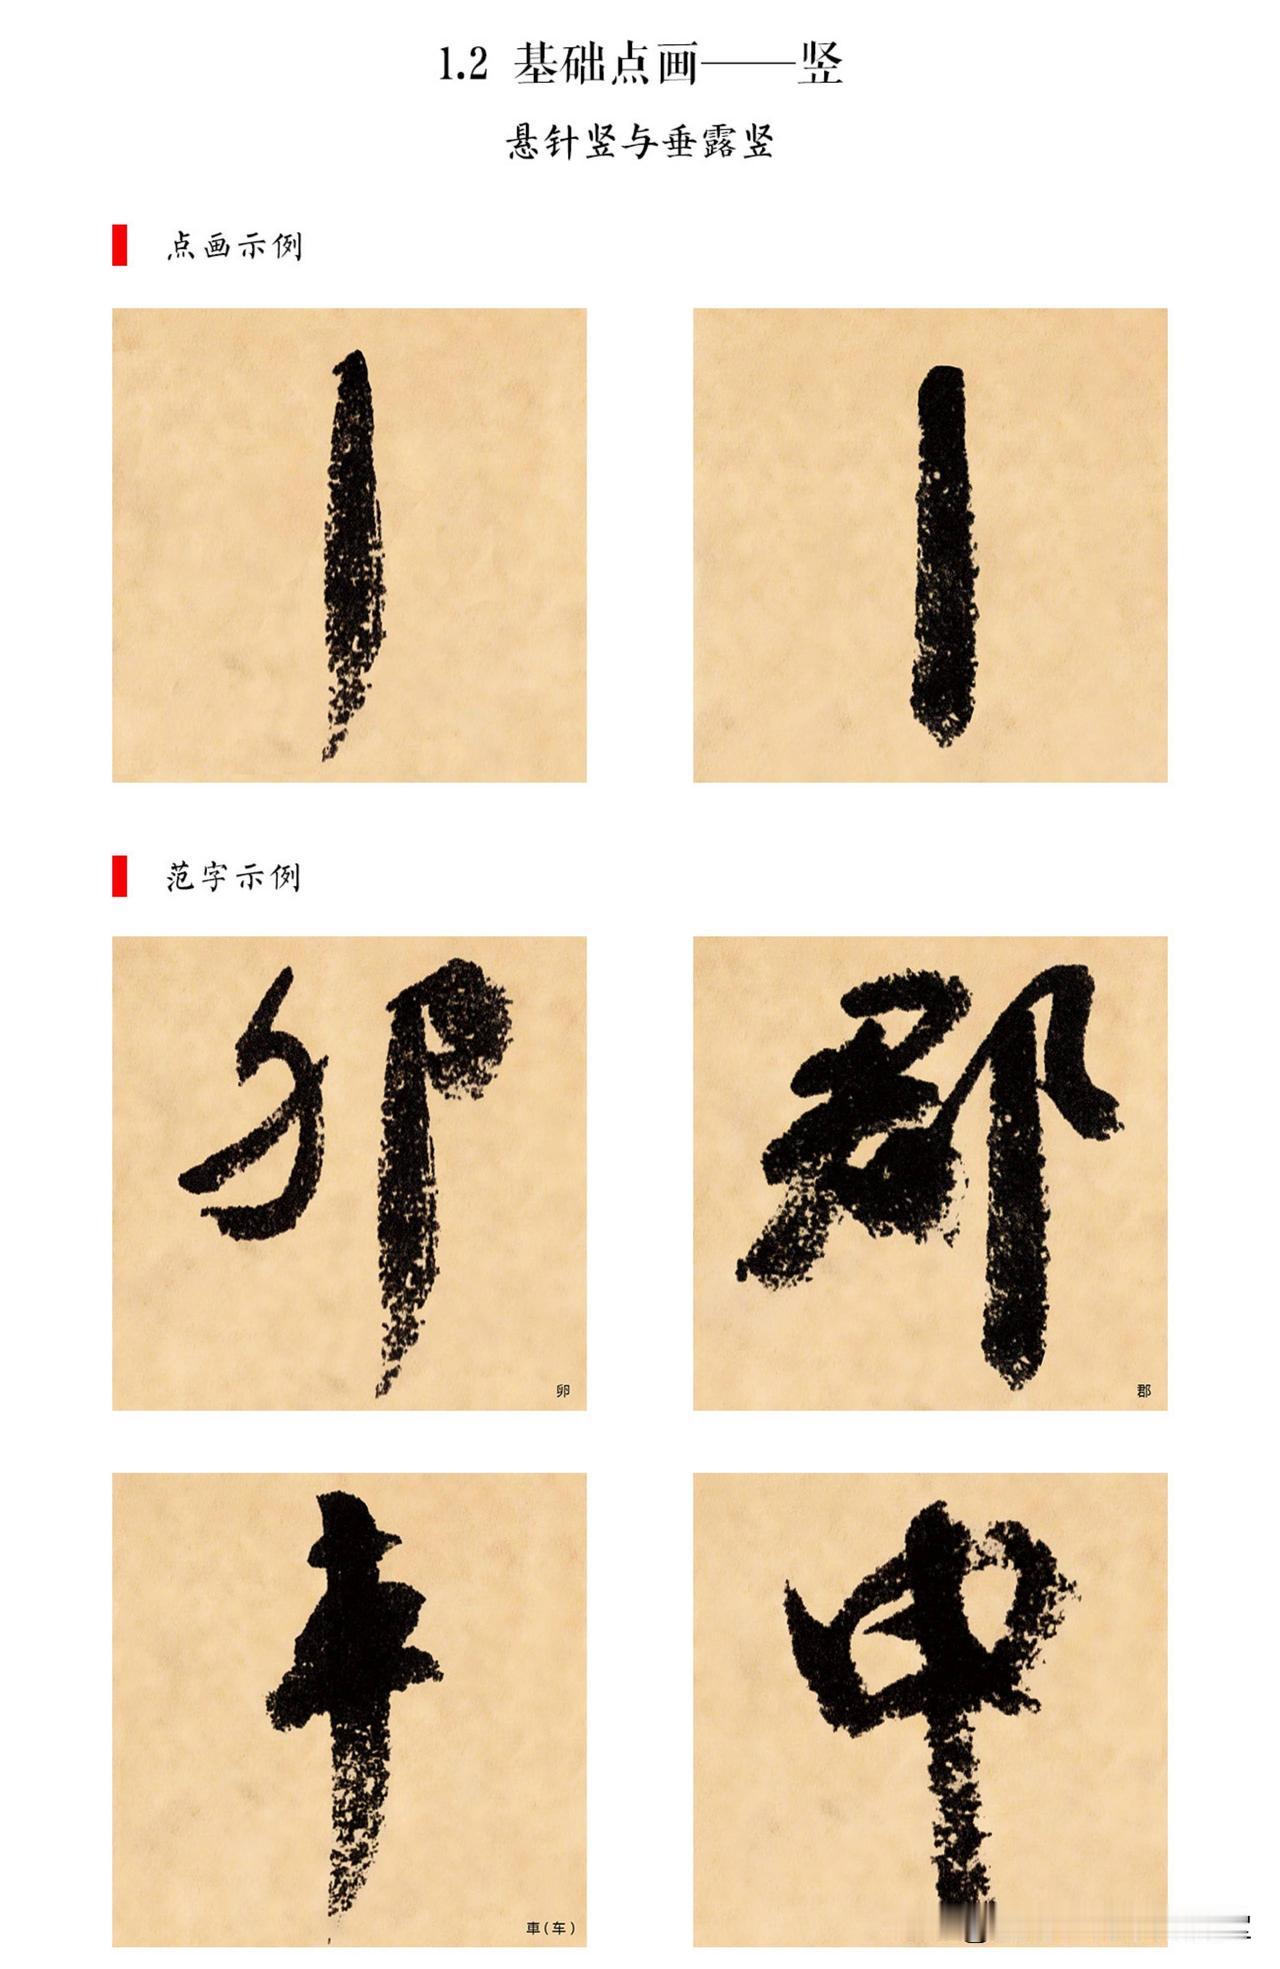 1.2 基础点画——竖
悬针竖与垂露竖
点画示例
范字示例
卯
郡
車(车)
中